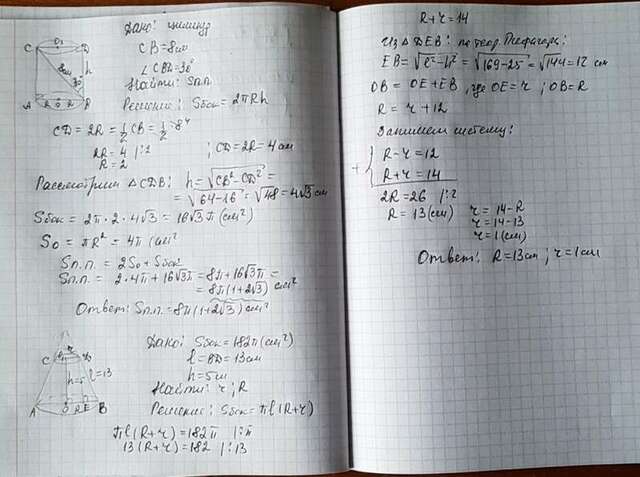 Дано: цилиндр
CB = 8см
∠CBD = 30°
Найти: Sп.п.
Решение: Sбок = 2πRh
CD = 2R = 1/2 CB = 1/2 · 8
2R = 4 | : 2
R = 2
; CD = 2R = 4 см
Рассмотрим △CDB: h = √CB² − CD² =
= √64 − 16 = √48 = 4√3 см
Sбок = 2π · 2 · 4√3 = 16√3 π (см²)
S₀ = πR² = 4π (см²
Sп.п. = 2S₀ + Sбок
Sп.п. = 2 · 4π + 16√3π = 8π + 16√3π =
= 8π(1 + 2√3) см²
Ответ: Sп.п. = 8π(1 + 2√3) см²
Дано: Sбок = 182π (см²)
l = BD = 13см
h = 5см
Найти: r; R
Решение: Sбок = πl(R + r)
πl(R + r) = 182π | : π
13(R + r) = 182 | : 13
R + r = 14
Из △DEB: по теор. Пифагора:
EB = √l² − h² = √169 − 25 = √144 = 12 см
OB = OE + EB, где OE = r; OB = R
R = r + 12
Запишем систему:
R − r = 12
+ R + r = 14
2R = 26 | : 2
R = 13 (см)
r = 14 − R
r = 14 − 13
r = 1 (см)
Ответ: R = 13см; r = 1см
C O₁ D
8см h
30°
A R O R B
C D
h=5 l=13
A O R E B